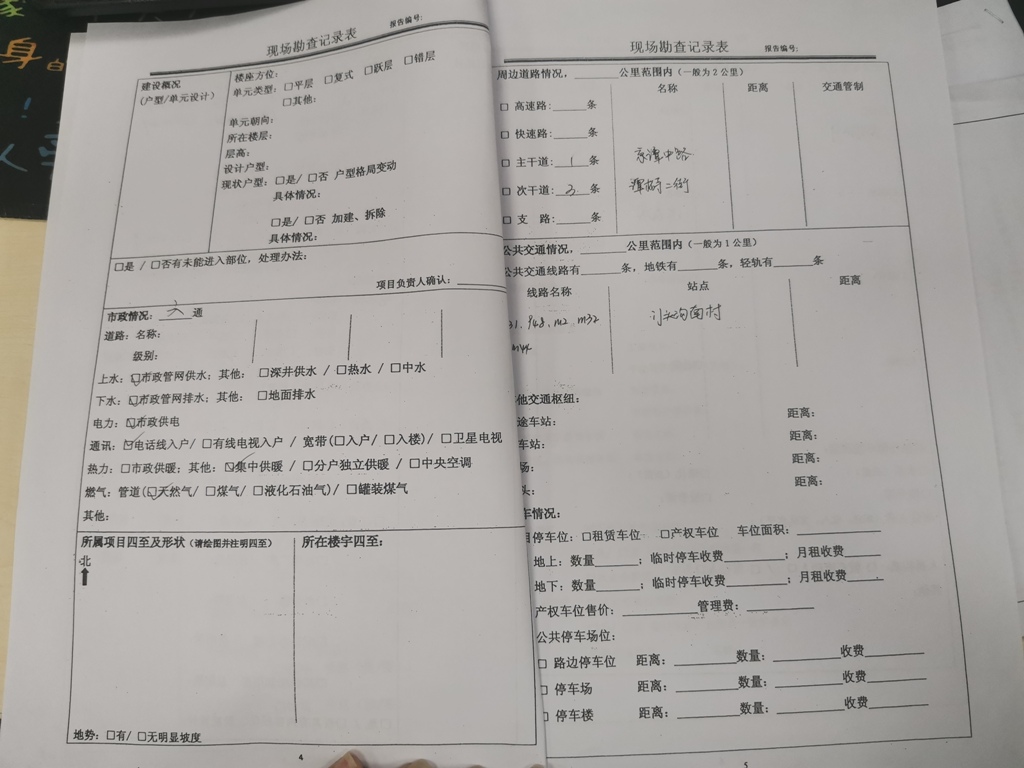 身
现场勘查记录表
报告编号:
建设概况
(户型/单元设计)
楼座方位:
单元类型: □平层 □复式 □跃层 □错层
□其他:
单元朝向:
所在楼层:
层高:
设计户型:
现状户型: □是/ □否 户型格局变动
具体情况:
□是/ □否 加建、拆除
具体情况:
□是 / □否有未能进入部位，处理办法:
项目负责人确认:
市政情况: 六 通
道路: 名称:
级别:
上水: ☑市政管网供水; 其他: □深井供水 / □热水 / □中水
下水: ☑市政管网排水; 其他: □地面排水
电力: ☑市政供电
通讯: ☑电话线入户/ □有线电视入户 / 宽带(□入户/ □入楼)/ □卫星电视
热力: □市政供暖; 其他: ☑集中供暖 / □分户独立供暖 / □中央空调
燃气: 管道(☑天然气/ □煤气/ □液化石油气)/ □罐装煤气
其他:
所属项目四至及形状 (请绘图并注明四至)
所在楼宇四至:
北
地势: □有/ □无明显坡度
4
现场勘查记录表
报告编号:
周边道路情况，______公里范围内 (一般为2公里)
名称 距离 交通管制
□ 高速路:_____条
□ 快速路:_____条
□ 主干道: 1 条
□ 次干道: 2 条
□ 支 路:_____条
公共交通情况，______公里范围内 (一般为1公里)
公共交通线路有______条，地铁有______条，轻轨有______条
线路名称 站点 距离
31、948、m2、m32
m44
他交通枢纽:
途车站: 距离:
车站: 距离:
场: 距离:
头: 距离:
车情况:
目停车位: □租赁车位 □产权车位 车位面积:
地上: 数量______; 临时停车收费________; 月租收费_____
地下: 数量______; 临时停车收费________; 月租收费_____
产权车位售价: __________管理费: _________
公共停车场位:
□ 路边停车位 距离: ________数量: _________收费________
□ 停车场 距离: ________数量: _________收费________
□ 停车楼 距离: ________数量: _________收费________
5